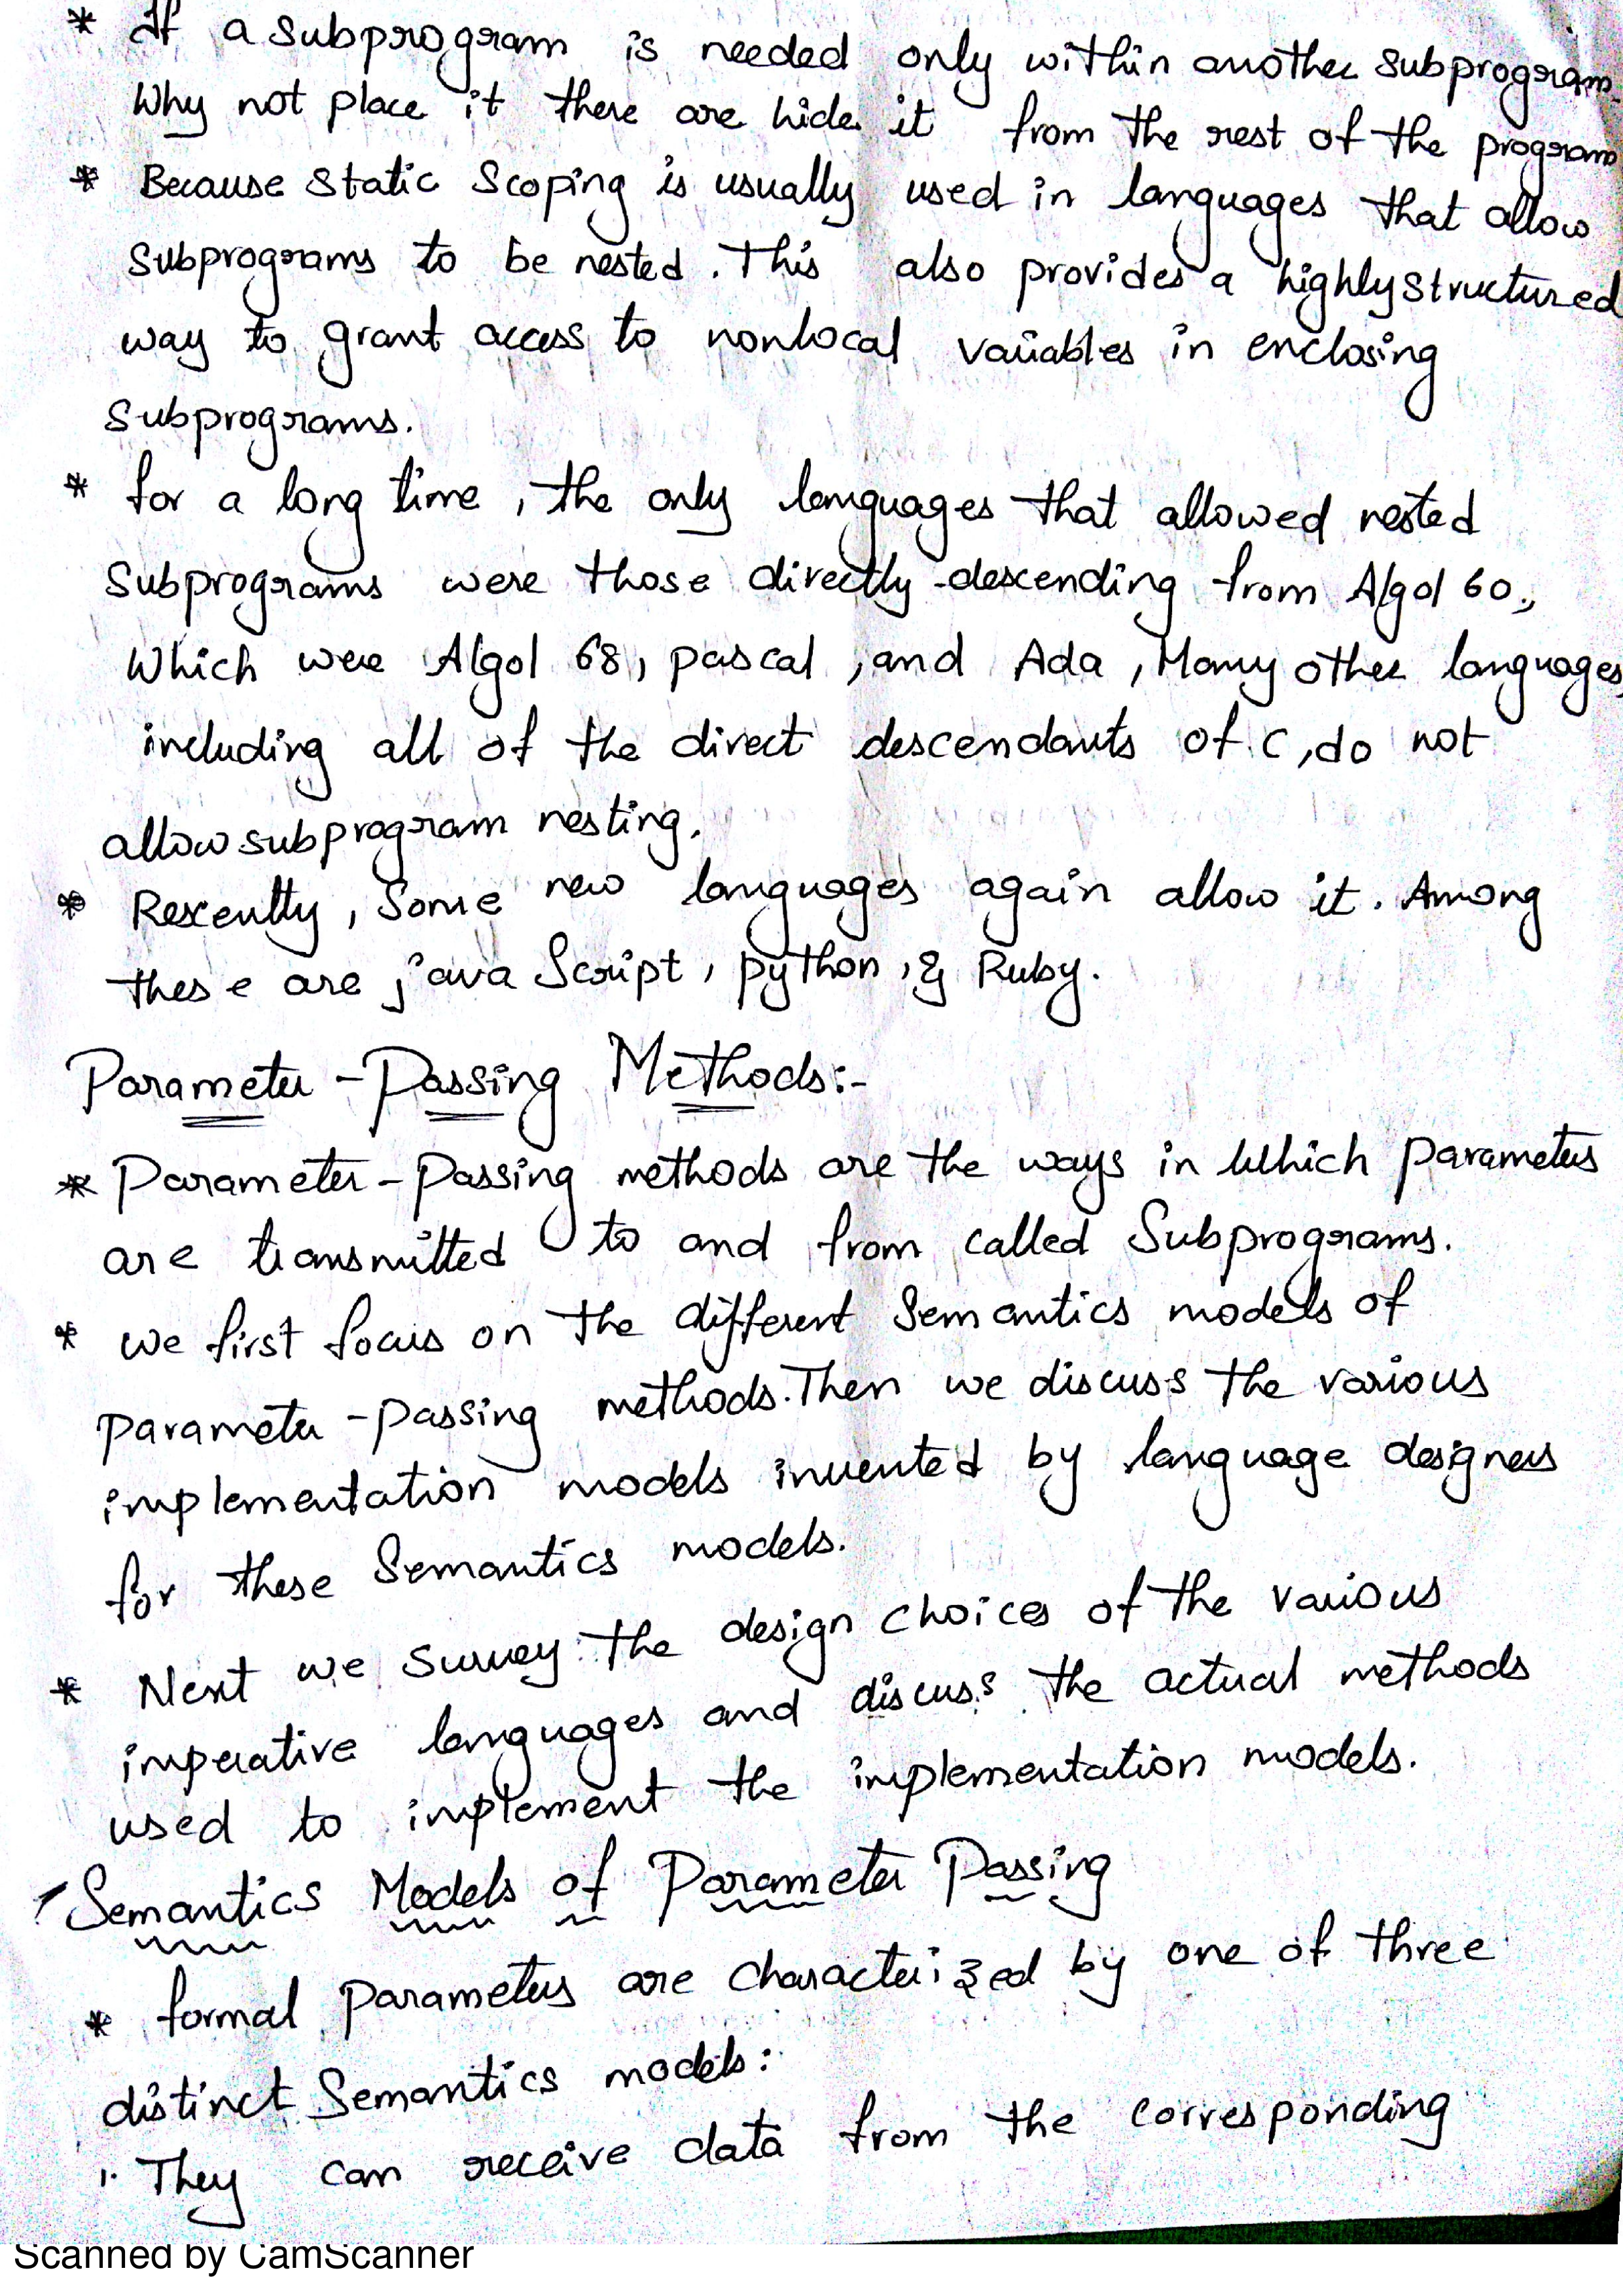 * If a subprogram is needed only within another subprogram
Why not place it there are hide it from the rest of the program
* Because static Scoping is usually used in languages that allow
subprograms to be nested. This also provides a highly structured
way to grant access to nonlocal variables in enclosing
subprograms.
* for a long time, the only languages that allowed nested
subprograms were those directly descending from Algol 60,
Which were Algol 68, pascal, and Ada, Many other languages
including all of the direct descendants of C, do not
allow subprogram nesting.
* Recently, Some new languages again allow it. Among
these are java Script, python, & Ruby.
Parameter - Passing Methods:-
* Parameter - Passing methods are the ways in Which parameters
are transmitted to and from called Subprograms.
* we first focus on the different Semantics models of
parameter - passing methods. Then we discuss the various
implementation models invented by language designers
for these Semantics models.
* Next we survey the design choices of the various
imperative languages and discuss the actual methods
used to implement the implementation models.
Semantics Models of Parameter Passing
* formal parameters are characterized by one of three
distinct Semantics models:
1. They can receive data from the corresponding
Scanned by CamScanner